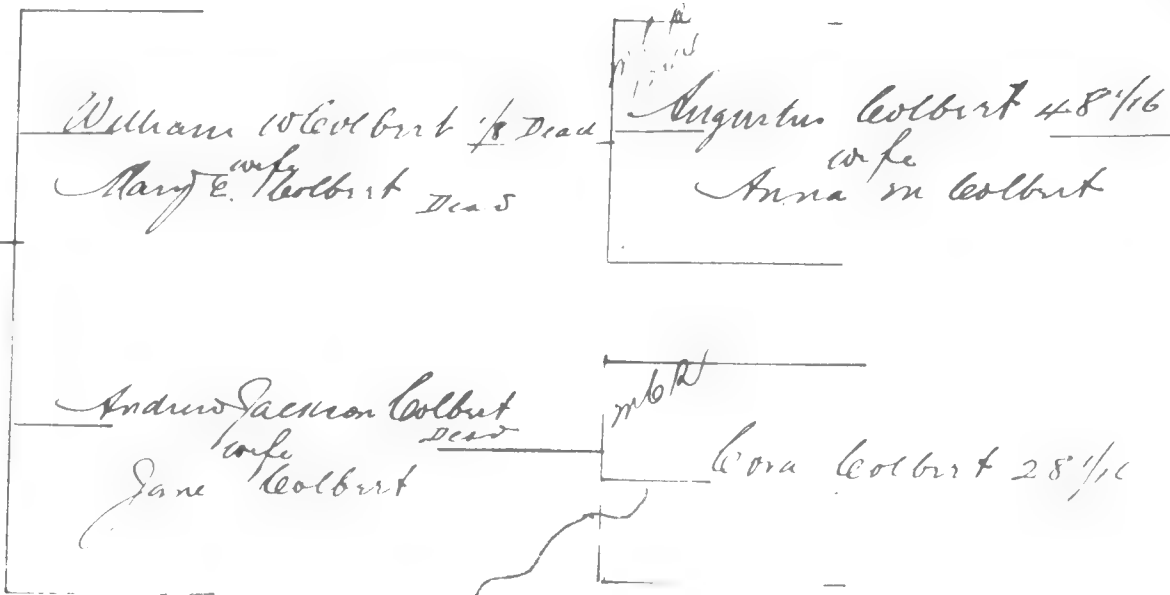 William W Colbert 1/8 Dead
wife
Mary E. Colbert Dead
Augustus Colbert 48 1/16
wife
Anna M Colbert
Andrew Jackson Colbert
Dead
wife
Jane Colbert
MCR
Cora Colbert 28 1/16